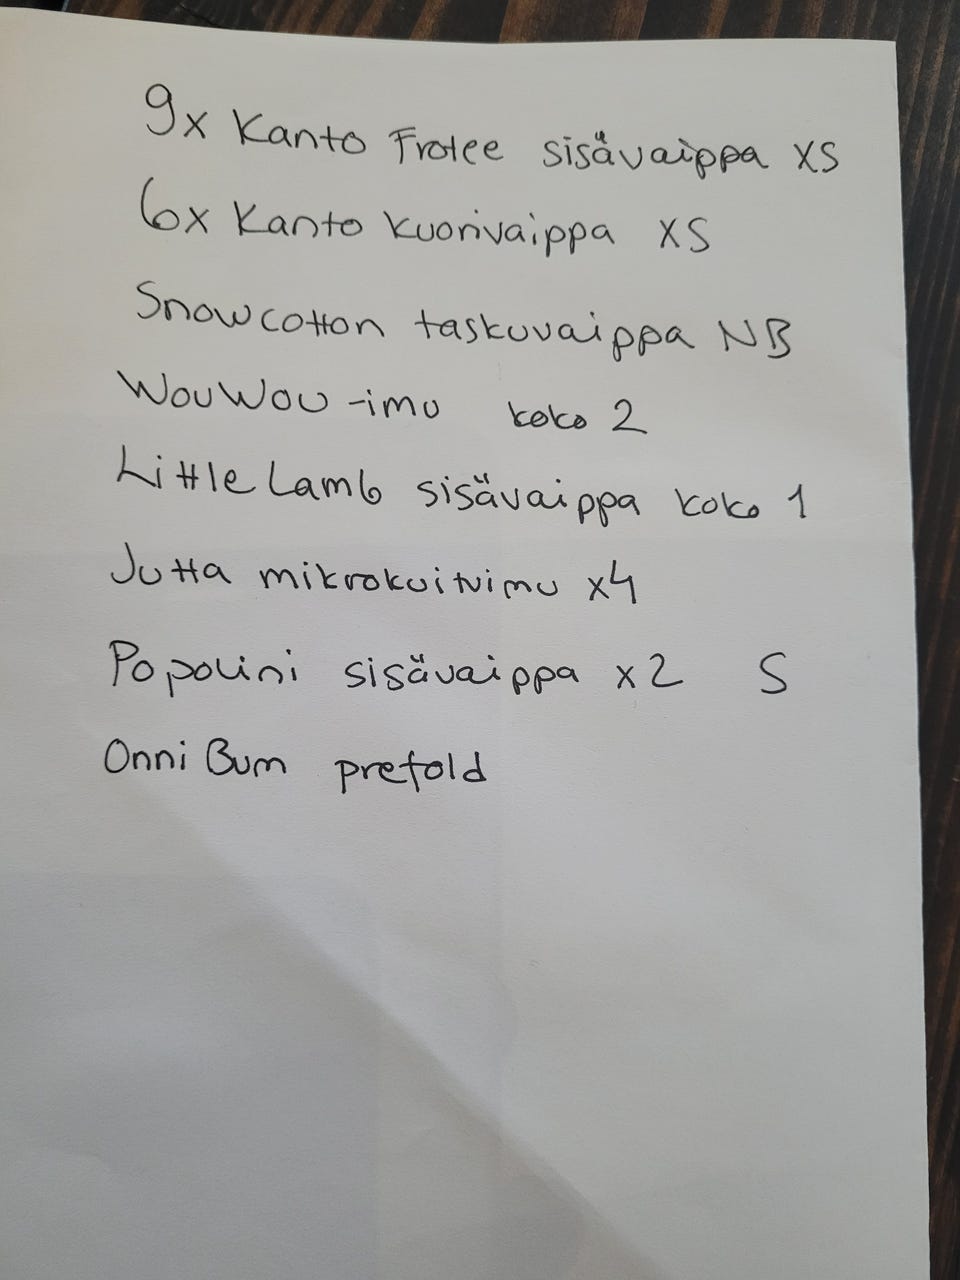 9x Kanto Frotee sisävaippa XS
6x Kanto kuorivaippa XS
Snowcotton taskuvaippa NB
WouWou -imu koko 2
Little Lamb sisävaippa koko 1
Jutta mikrokuituimu x4
Popolini sisävaippa x2 S
Onni Bum prefold